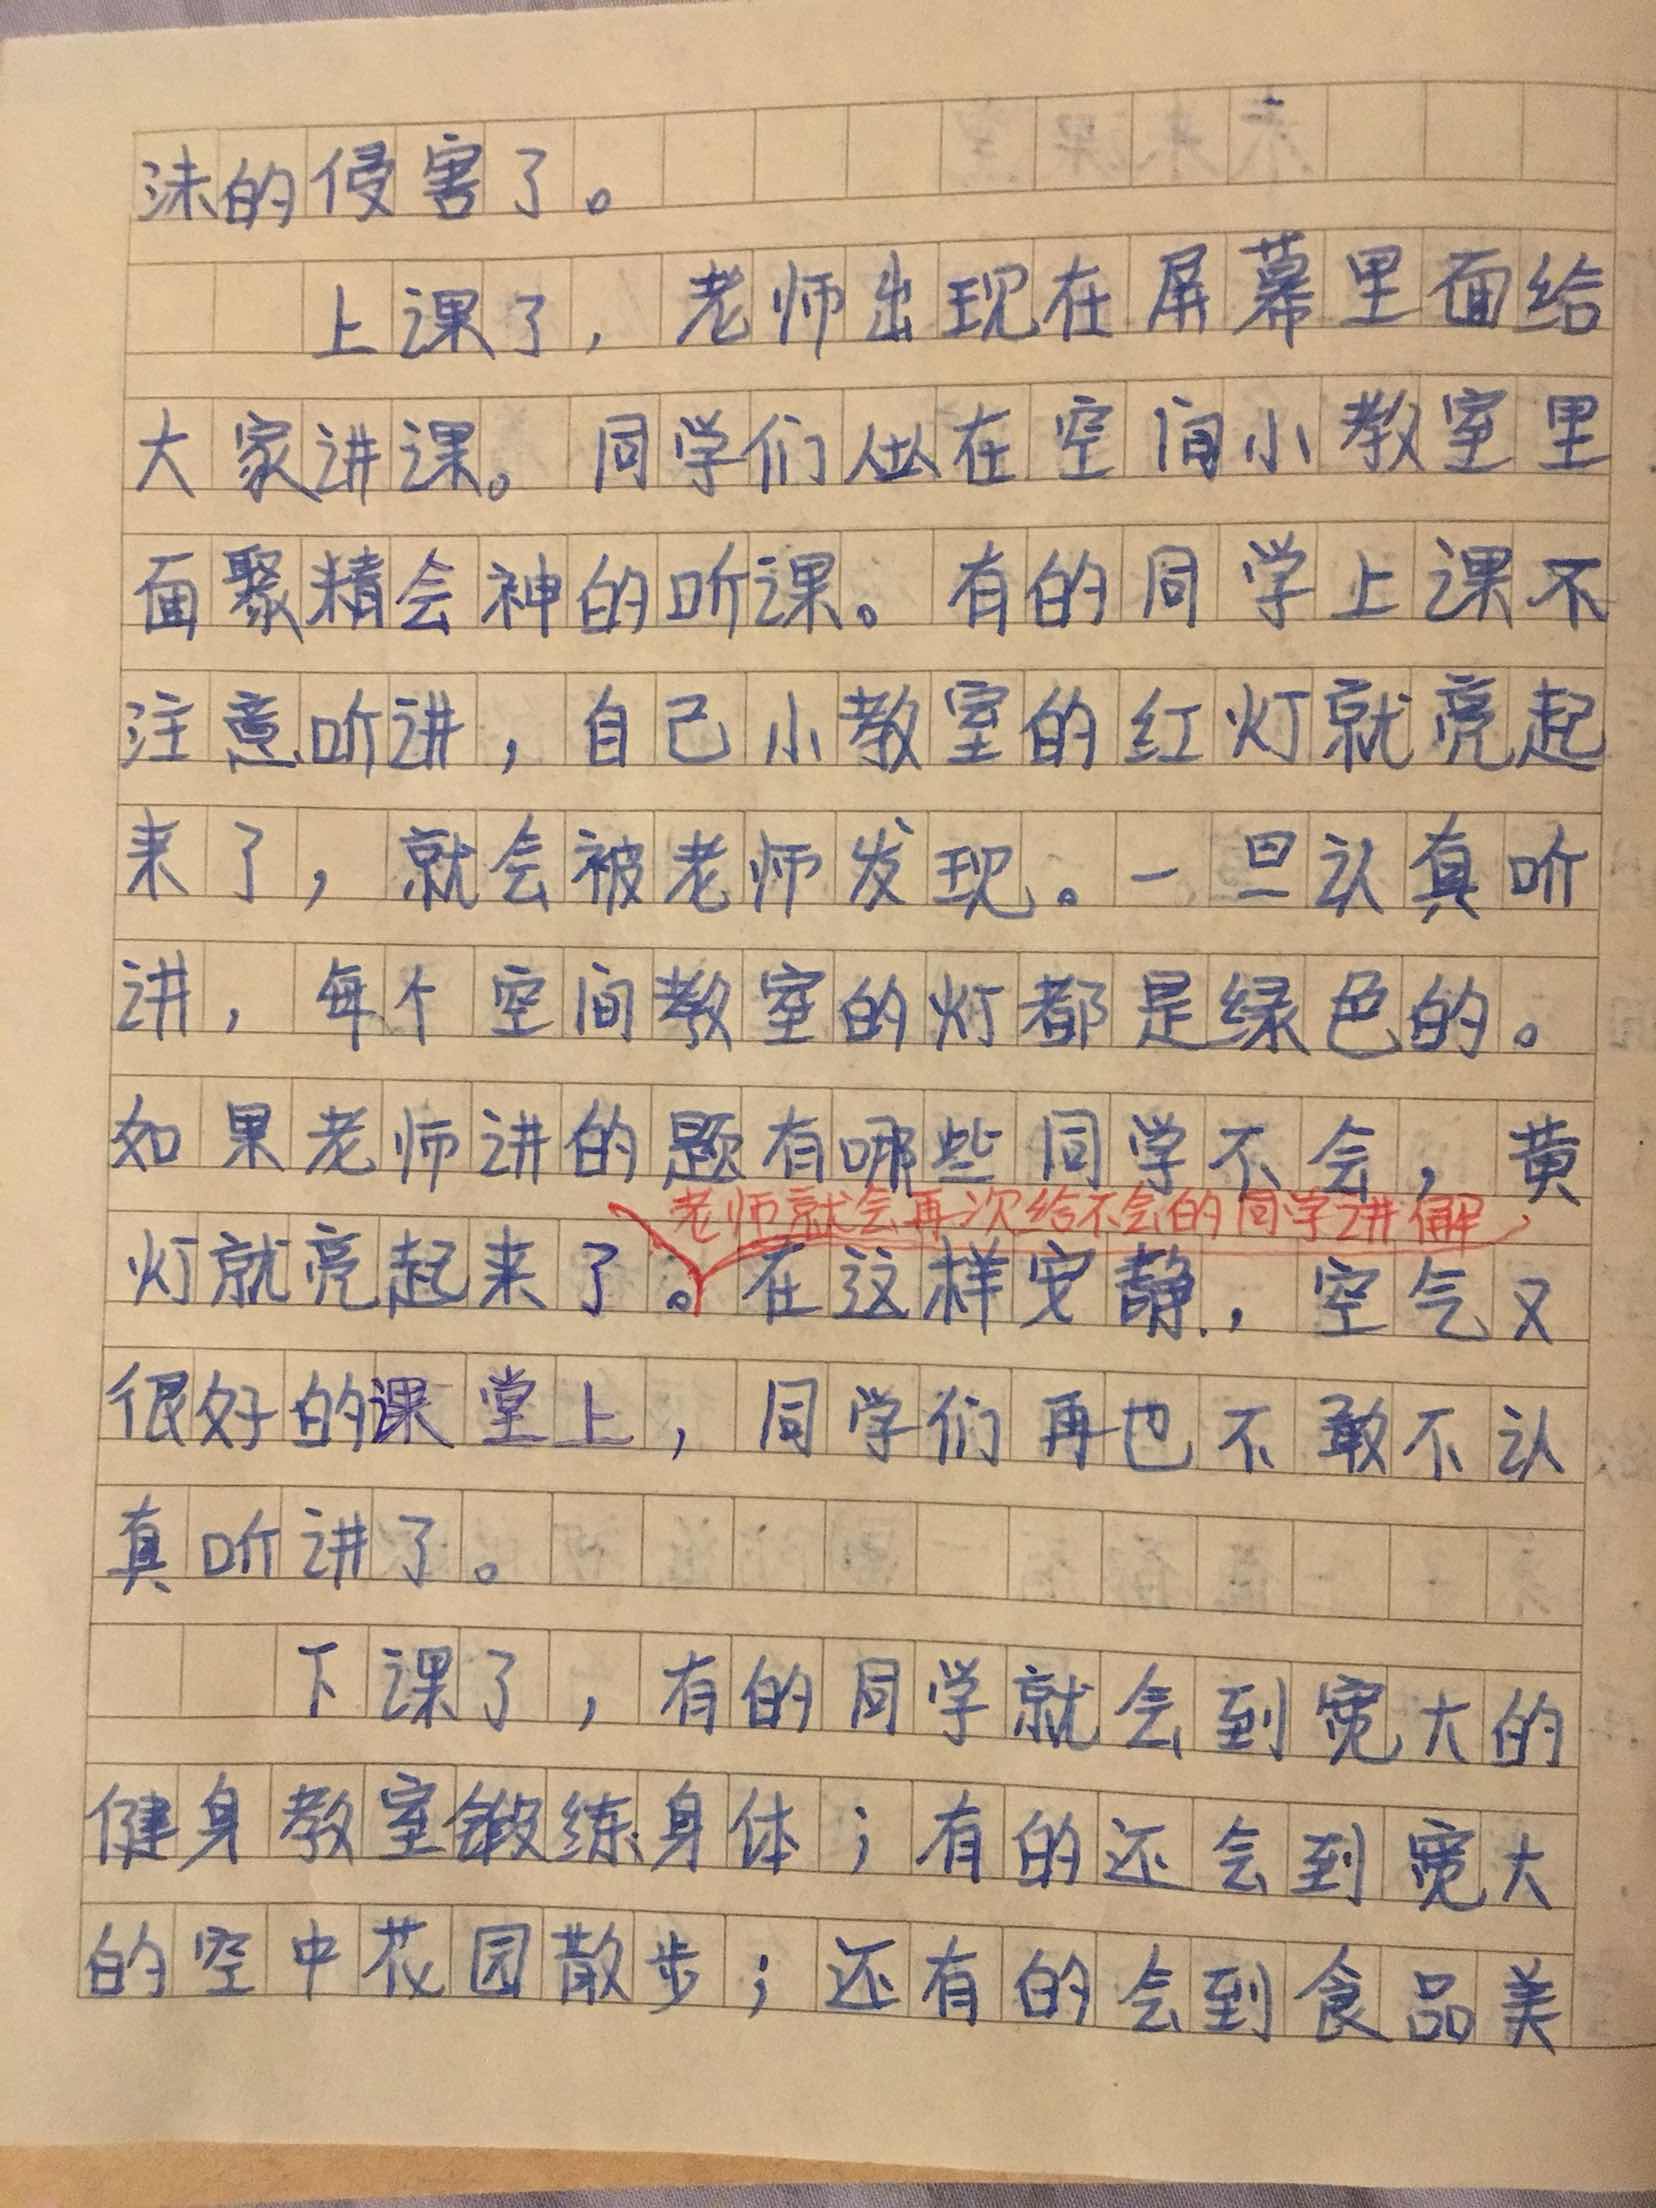 沫的侵害了。
上课了，老师出现在屏幕里面给
大家讲课。同学们坐在空间小教室里
面聚精会神的听课。有的同学上课不
注意听讲，自己小教室的红灯就亮起
来了，就会被老师发现。一旦认真听
讲，每个空间教室的灯都是绿色的。
如果老师讲的题有哪些同学不会，黄
老师就会再次给不会的同学讲解，
灯就亮起来了。在这样安静，空气又
很好的课堂上，同学们再也不敢不认
真听讲了。
下课了，有的同学就会到宽大的
健身教室锻练身体；有的还会到宽大
的空中花园散步；还有的会到食品美